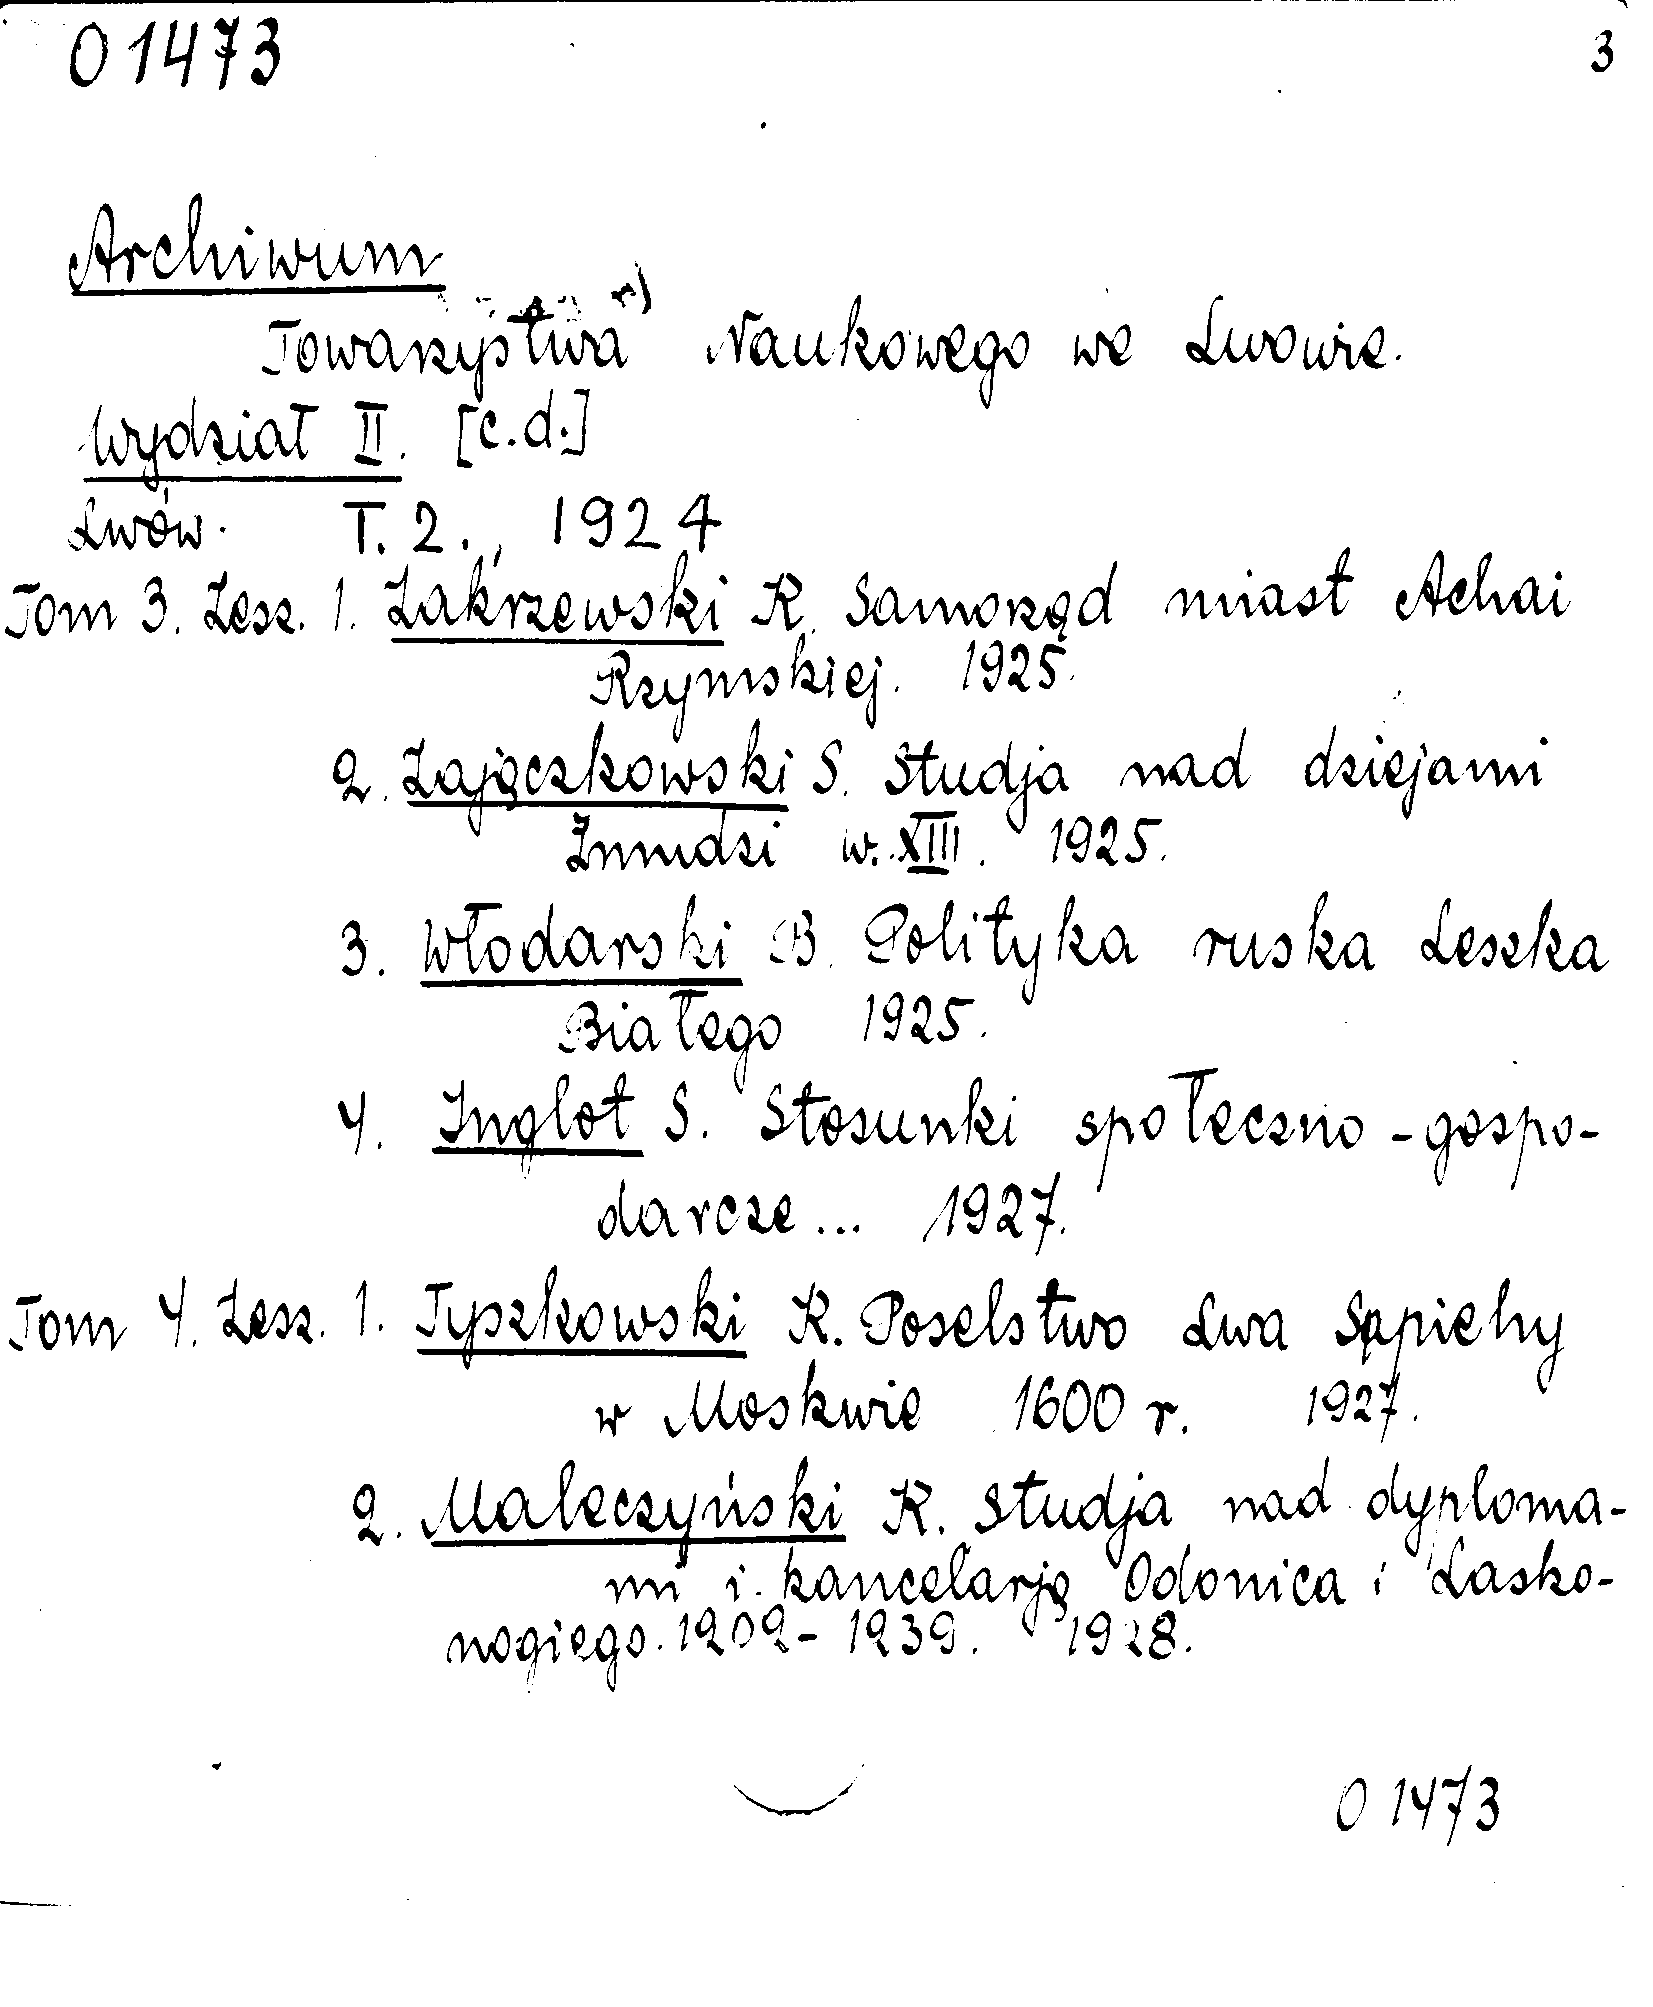 O 1473
3
Archiwum
Towarzystwa Naukowego we Lwowie.
Wydział II. [c.d.]
Lwów. T. 2., 1924
Tom 3. Zesz. 1. Zakrzewski K. Samorząd miast Achai
Rzymskiej. 1925.
2. Zajączkowski S. Studja nad dziejami
Żmudzi w. XIII. 1925.
3. Włodarski B. Polityka ruska Leszka
Białego 1925.
4. Inglot S. Stosunki społeczno-gospo-
darcze... 1927.
Tom 4. Zesz. 1. Tyszkowski K. Poselstwo Lwa Sapiehy
w Moskwie 1600 r. 1927.
2. Maleczyński K. Studja nad dyploma-
mi i kancelarją Odonica i Lasko-
nogiego. 1202-1239. 1928.
O 1473